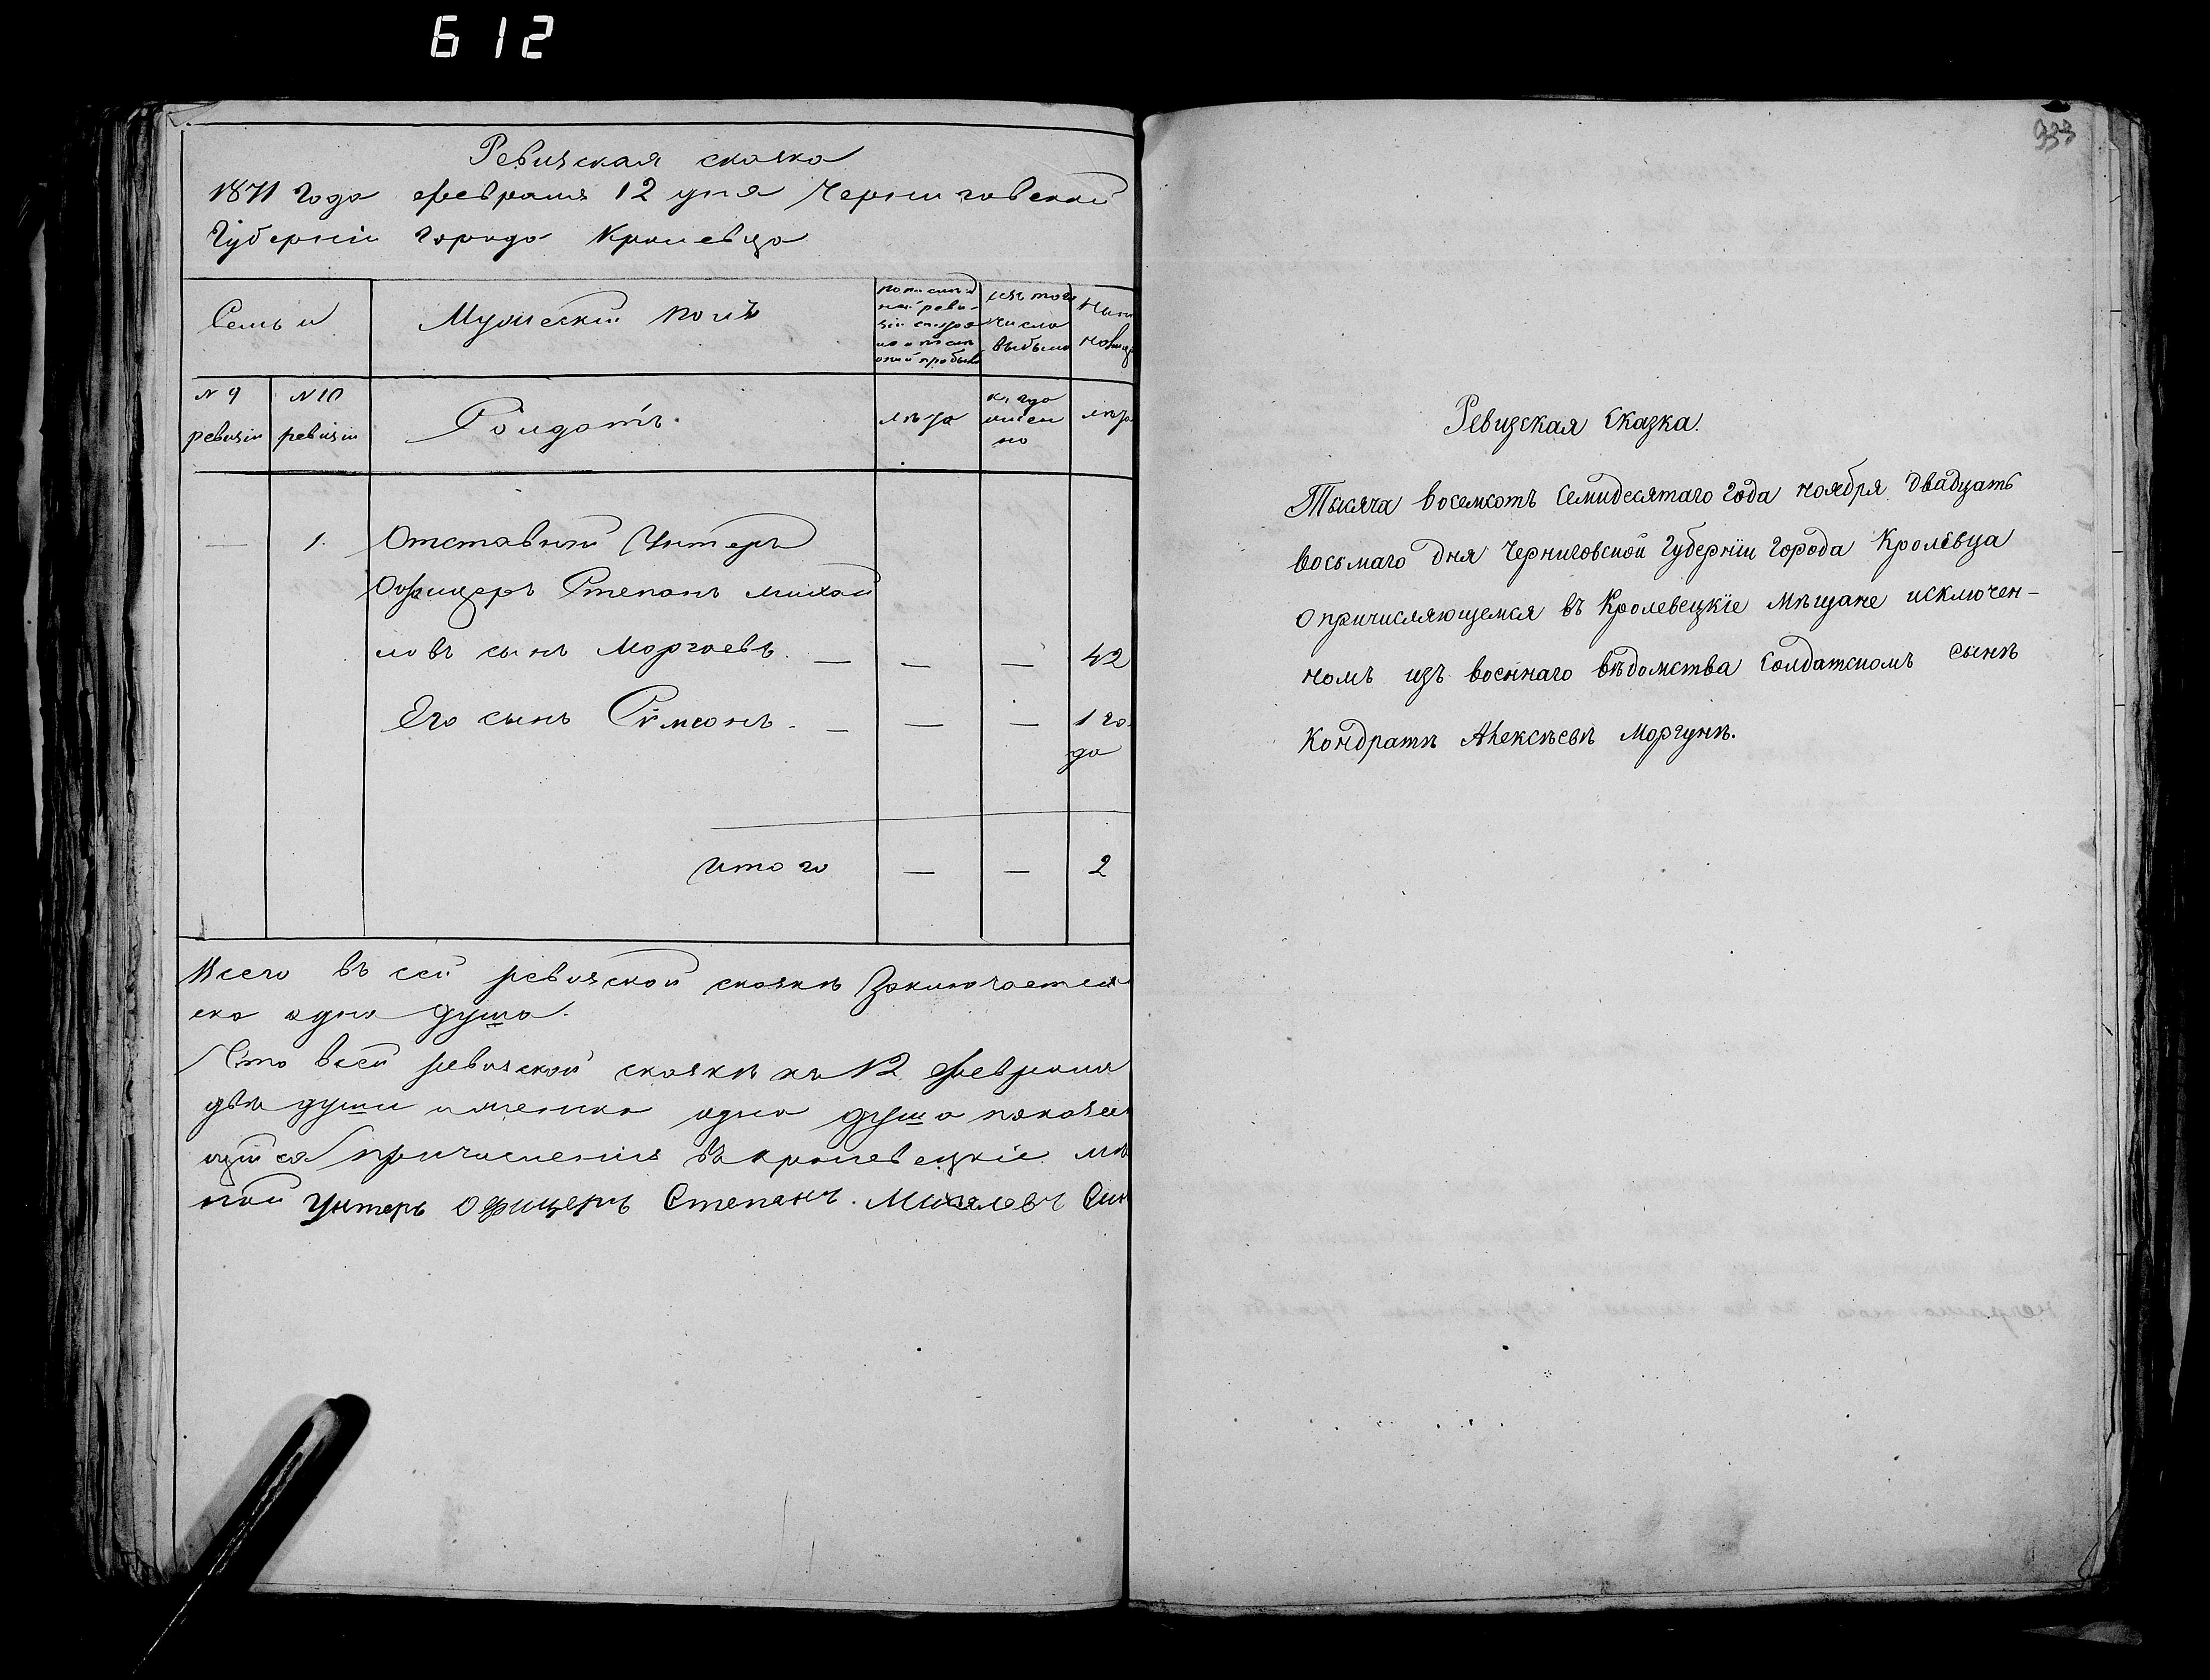 612
Ревизская сказка
1871 Года февраля 12 дня Черниговской
Губерніи города Кролевца
Семьи
Мужескій полъ
изъ того
числа
выбыло
Ныне
№ 9
ревизіи
№ 10
ревизіи
Солдатъ.
лѣта
когда
имен
но
лѣта
— 1. Отставный Унтеръ
Офицеръ Степанъ Михай
ловъ сынъ Моргаевъ. — — — 42
Его сынъ Симеонъ. — — — 1 го
да
Итого — — 2
Всего въ сей ревизской сказкѣ Заключается
ско одна душа.
Что всей ревизской сказкѣ къ 12 февраля
двѣ души именно одна душа
щійся причисленія въ кролевецкіе мѣ
ной Унтеръ Офицеръ Степанъ. Михаловъ Син
933
Ревизская Сказка.
Тысяча восемсотъ Семидесятаго года ноября двадцать
восьмаго дня Черниговской Губерніи Города Кролевца
о причисляющемся въ Кролевецкіе Мѣщане исключен-
номъ изъ военнаго вѣдомства Солдатскомъ сынѣ
Кондратѣ Алексѣевѣ Моргунѣ.